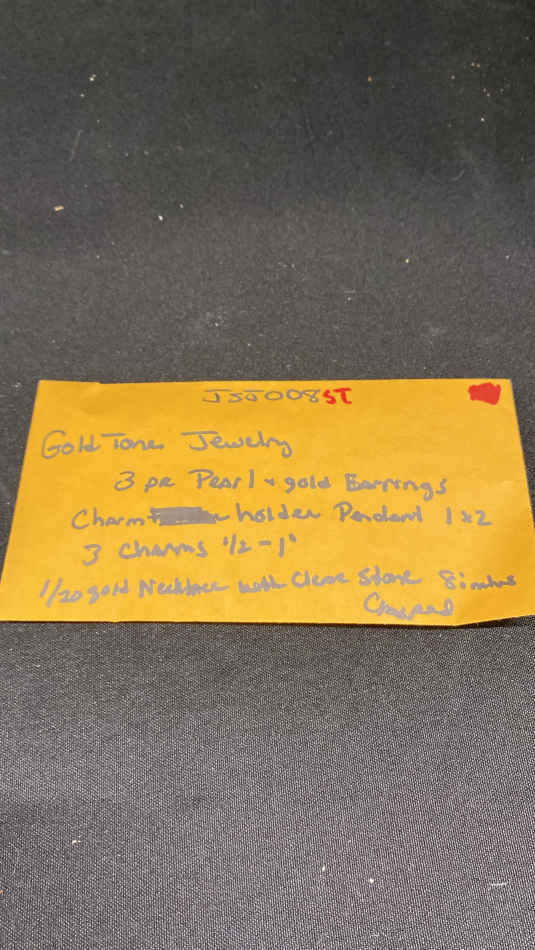 JJJ008ST
Gold Tone Jewelry
3 pr Pearl + gold Earrings
Charm holder Pendant 1x2
3 Charms 1/2 - 1"
1/20 gold Necklace with Clear Stone 8 inches
Clasped